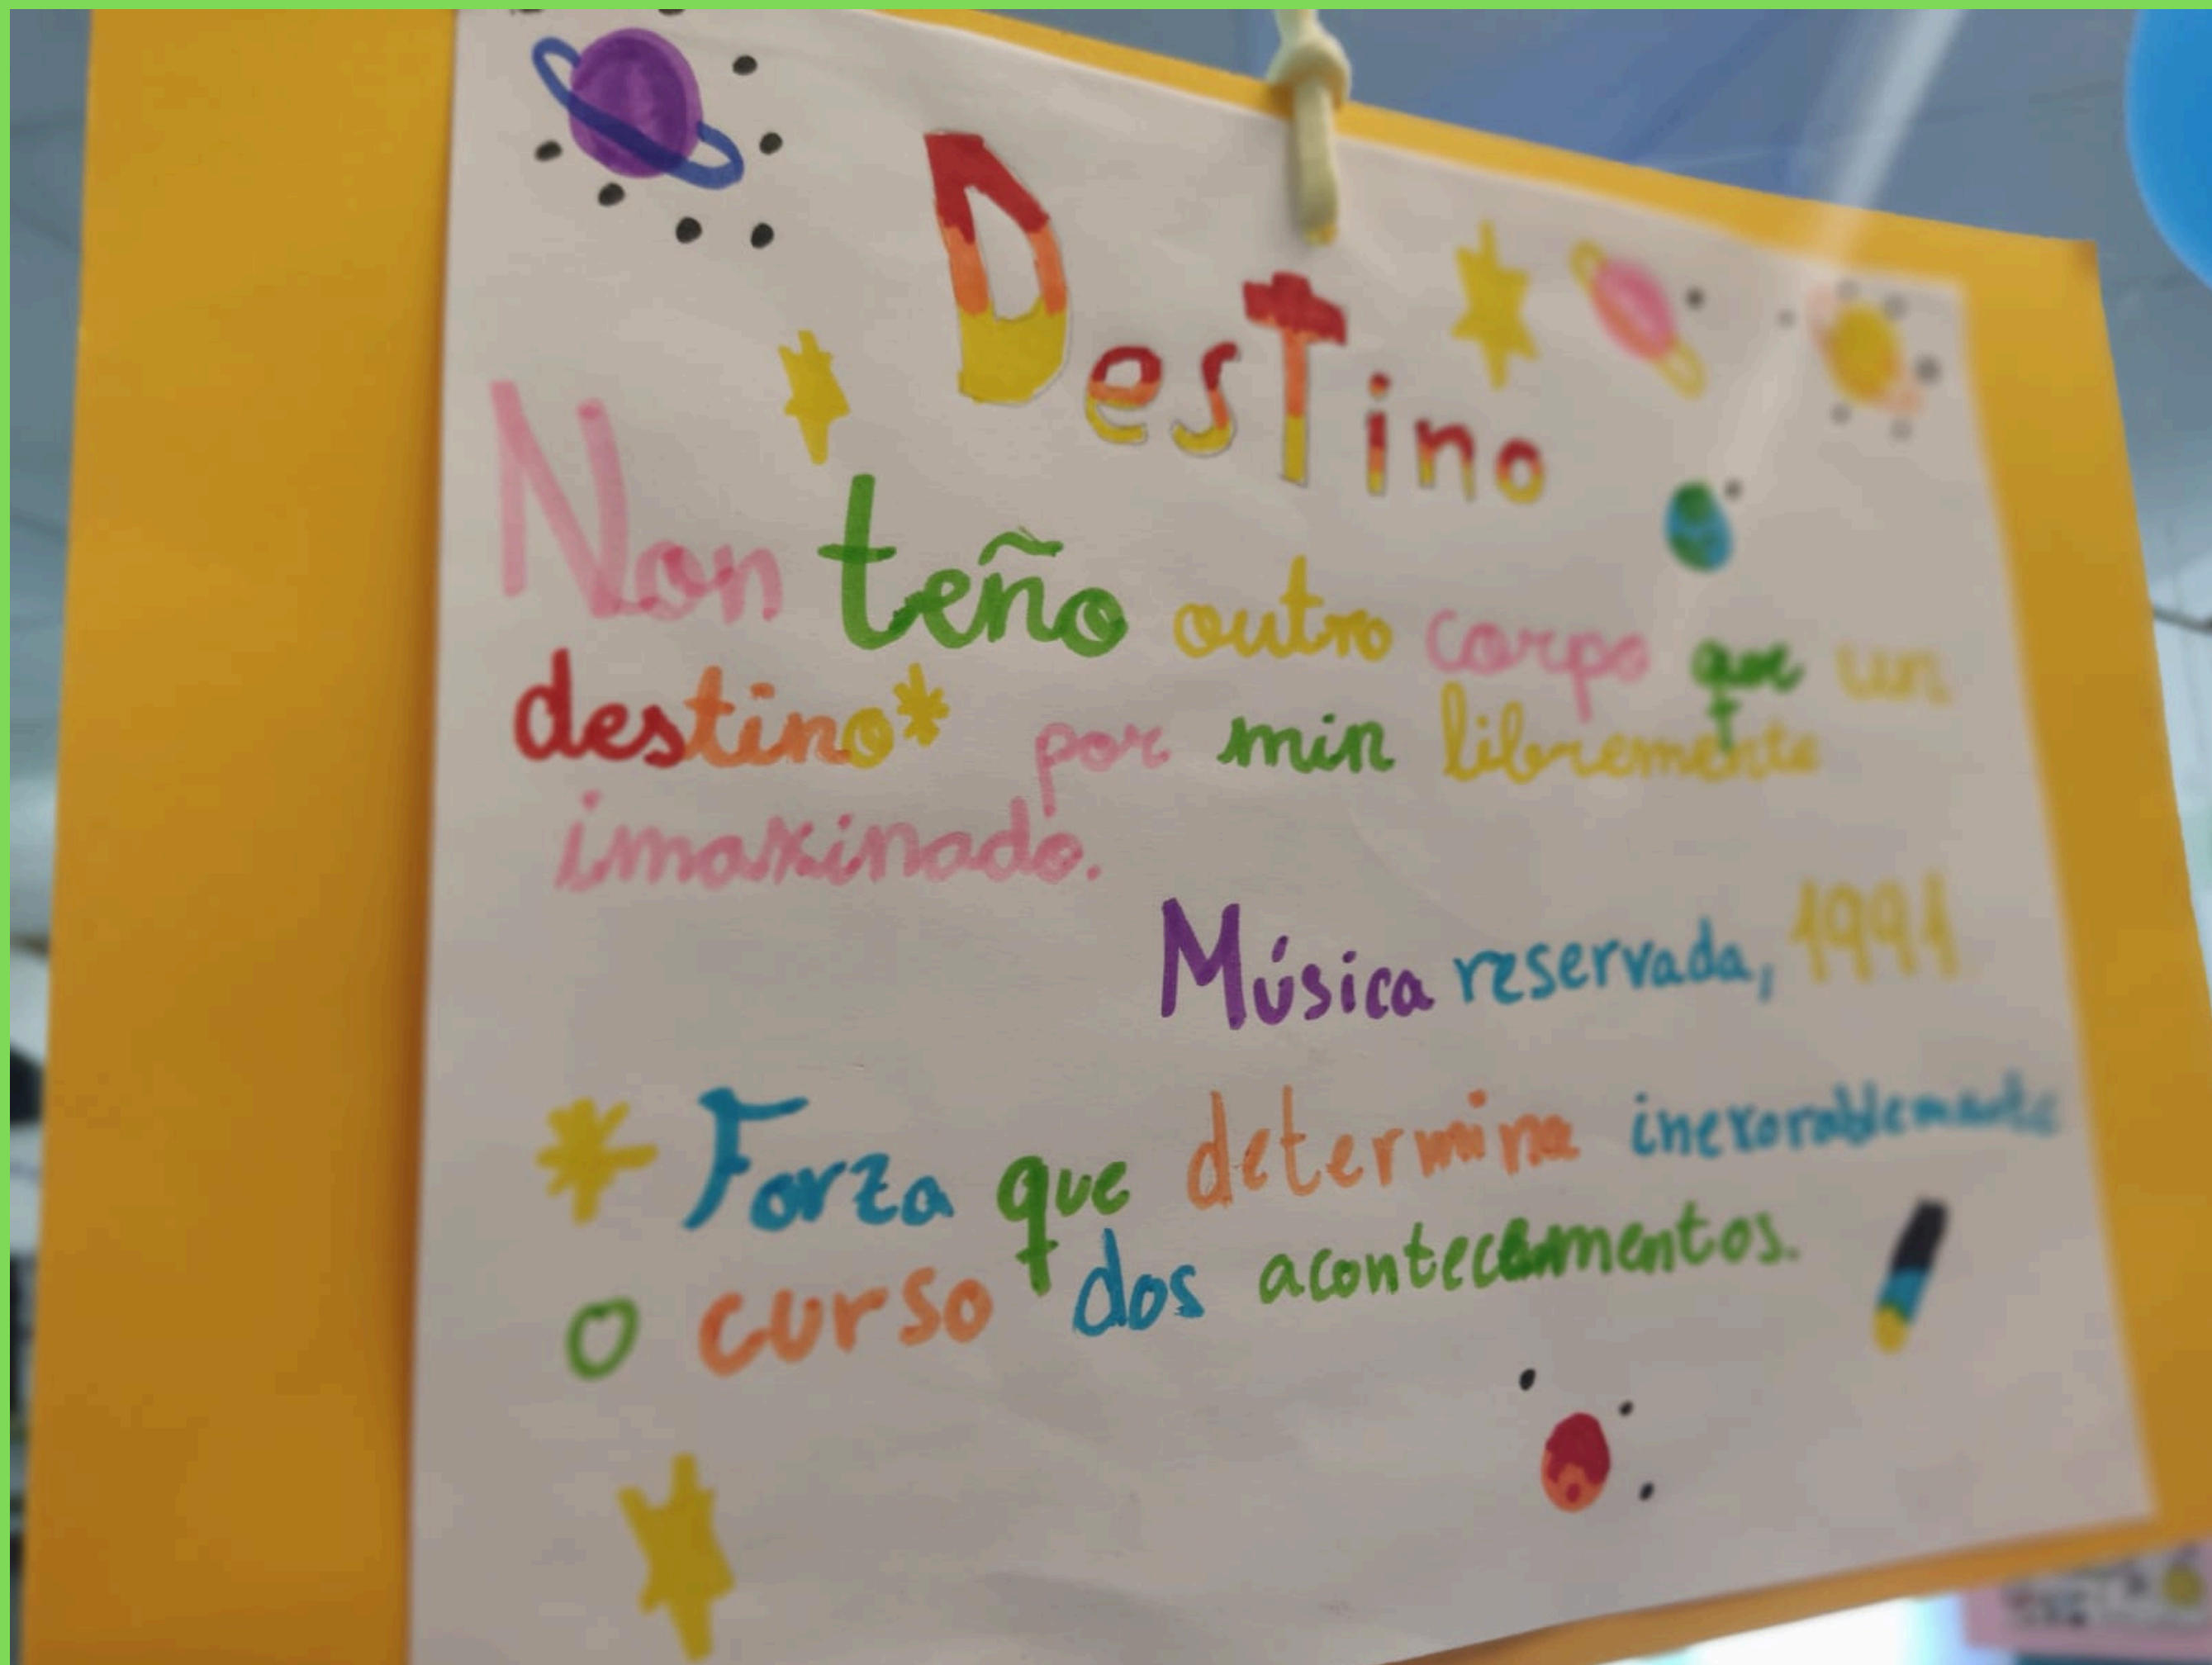 Destino
Non teño outro corpo que un
destino* por min libremente
imaxinado.
Música reservada, 1991
* Forza que determina inexorablemente
o curso dos acontecementos.